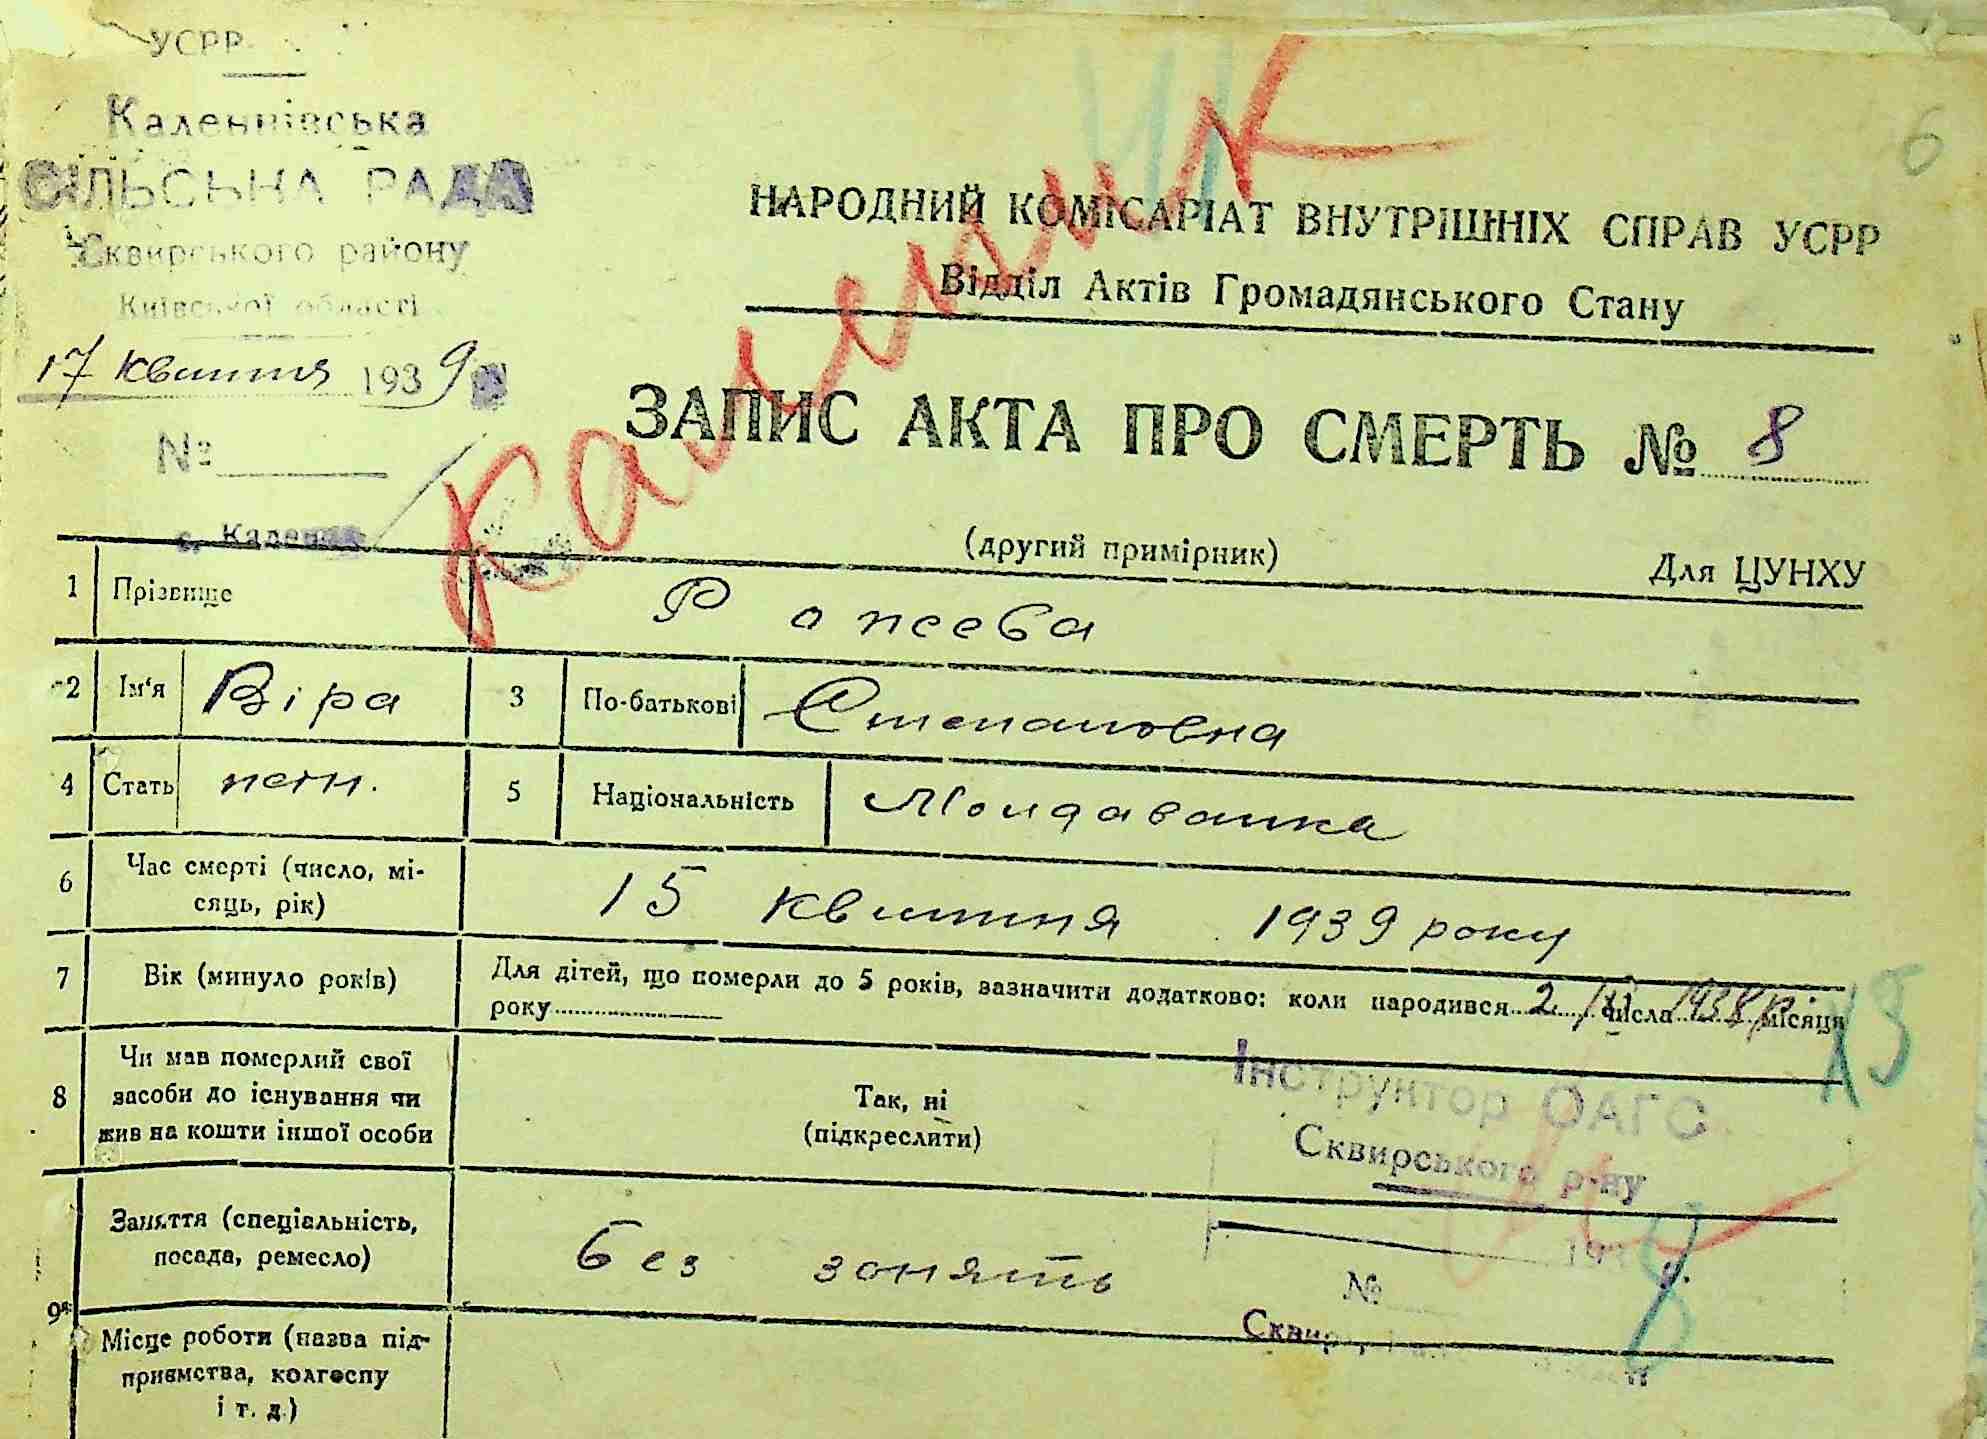 УСРР
Каленнівська
СІЛЬСЬКА РАДА
Сквирського району
Київської області
17 квітня 1939
№
с. Каленна
Каленик
6
НАРОДНИЙ КОМІСАРІАТ ВНУТРІШНІХ СПРАВ УСРР
Відділ Актів Громадянського Стану
ЗАПИС АКТА ПРО СМЕРТЬ № 8
(другий примірник)
Для ЦУНХУ
1 Прізвище
2 Ім'я Віра 3 По-батькові Степановна
4 Стать жен. 5 Національність Молдаванка
6 Час смерті (число, мі-
сяць, рік) 15 квітня 1939 року
7 Вік (минуло років) Для дітей, що померли до 5 років, зазначити додатково: коли народився 2/XI числа 1938 р. місяця
року
15
8 Чи мав померлий свої
засоби до існування чи
жив на кошти іншої особи
Так, ні
(підкреслити)
Інструктор ОАГС
Сквирського р-ну
193
№
Сквир
9 Заняття (спеціальність,
посада, ремесло) без зонять
Місце роботи (назва під-
приємства, колгоспу
і т. д.)